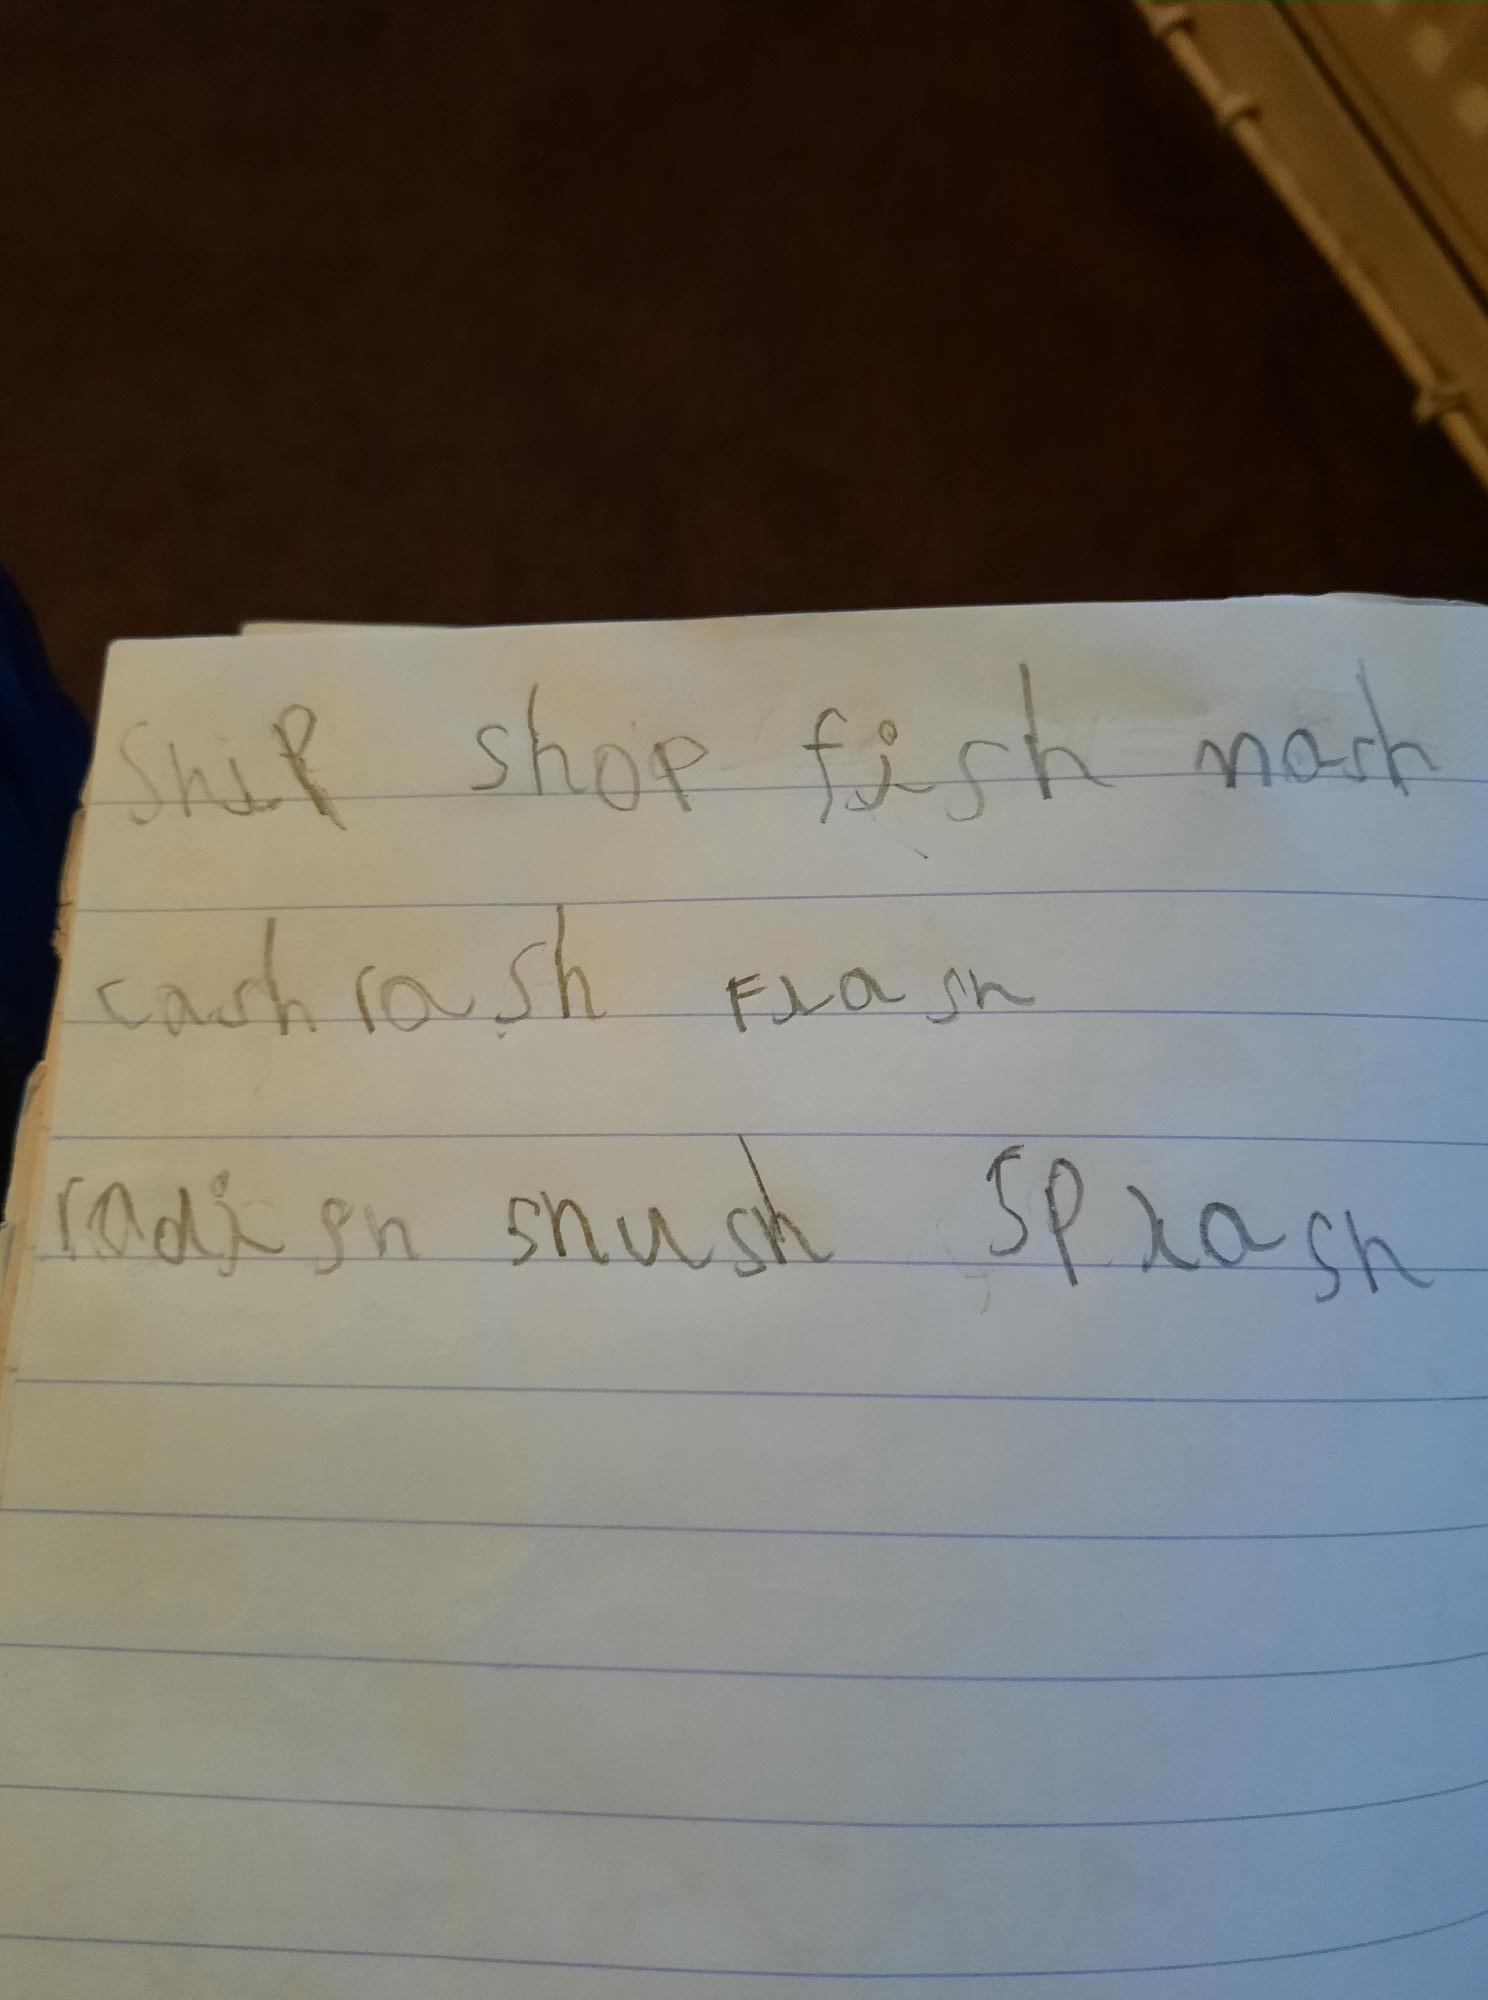 ship shop fish mash
cash rash Flash
radish shush splash